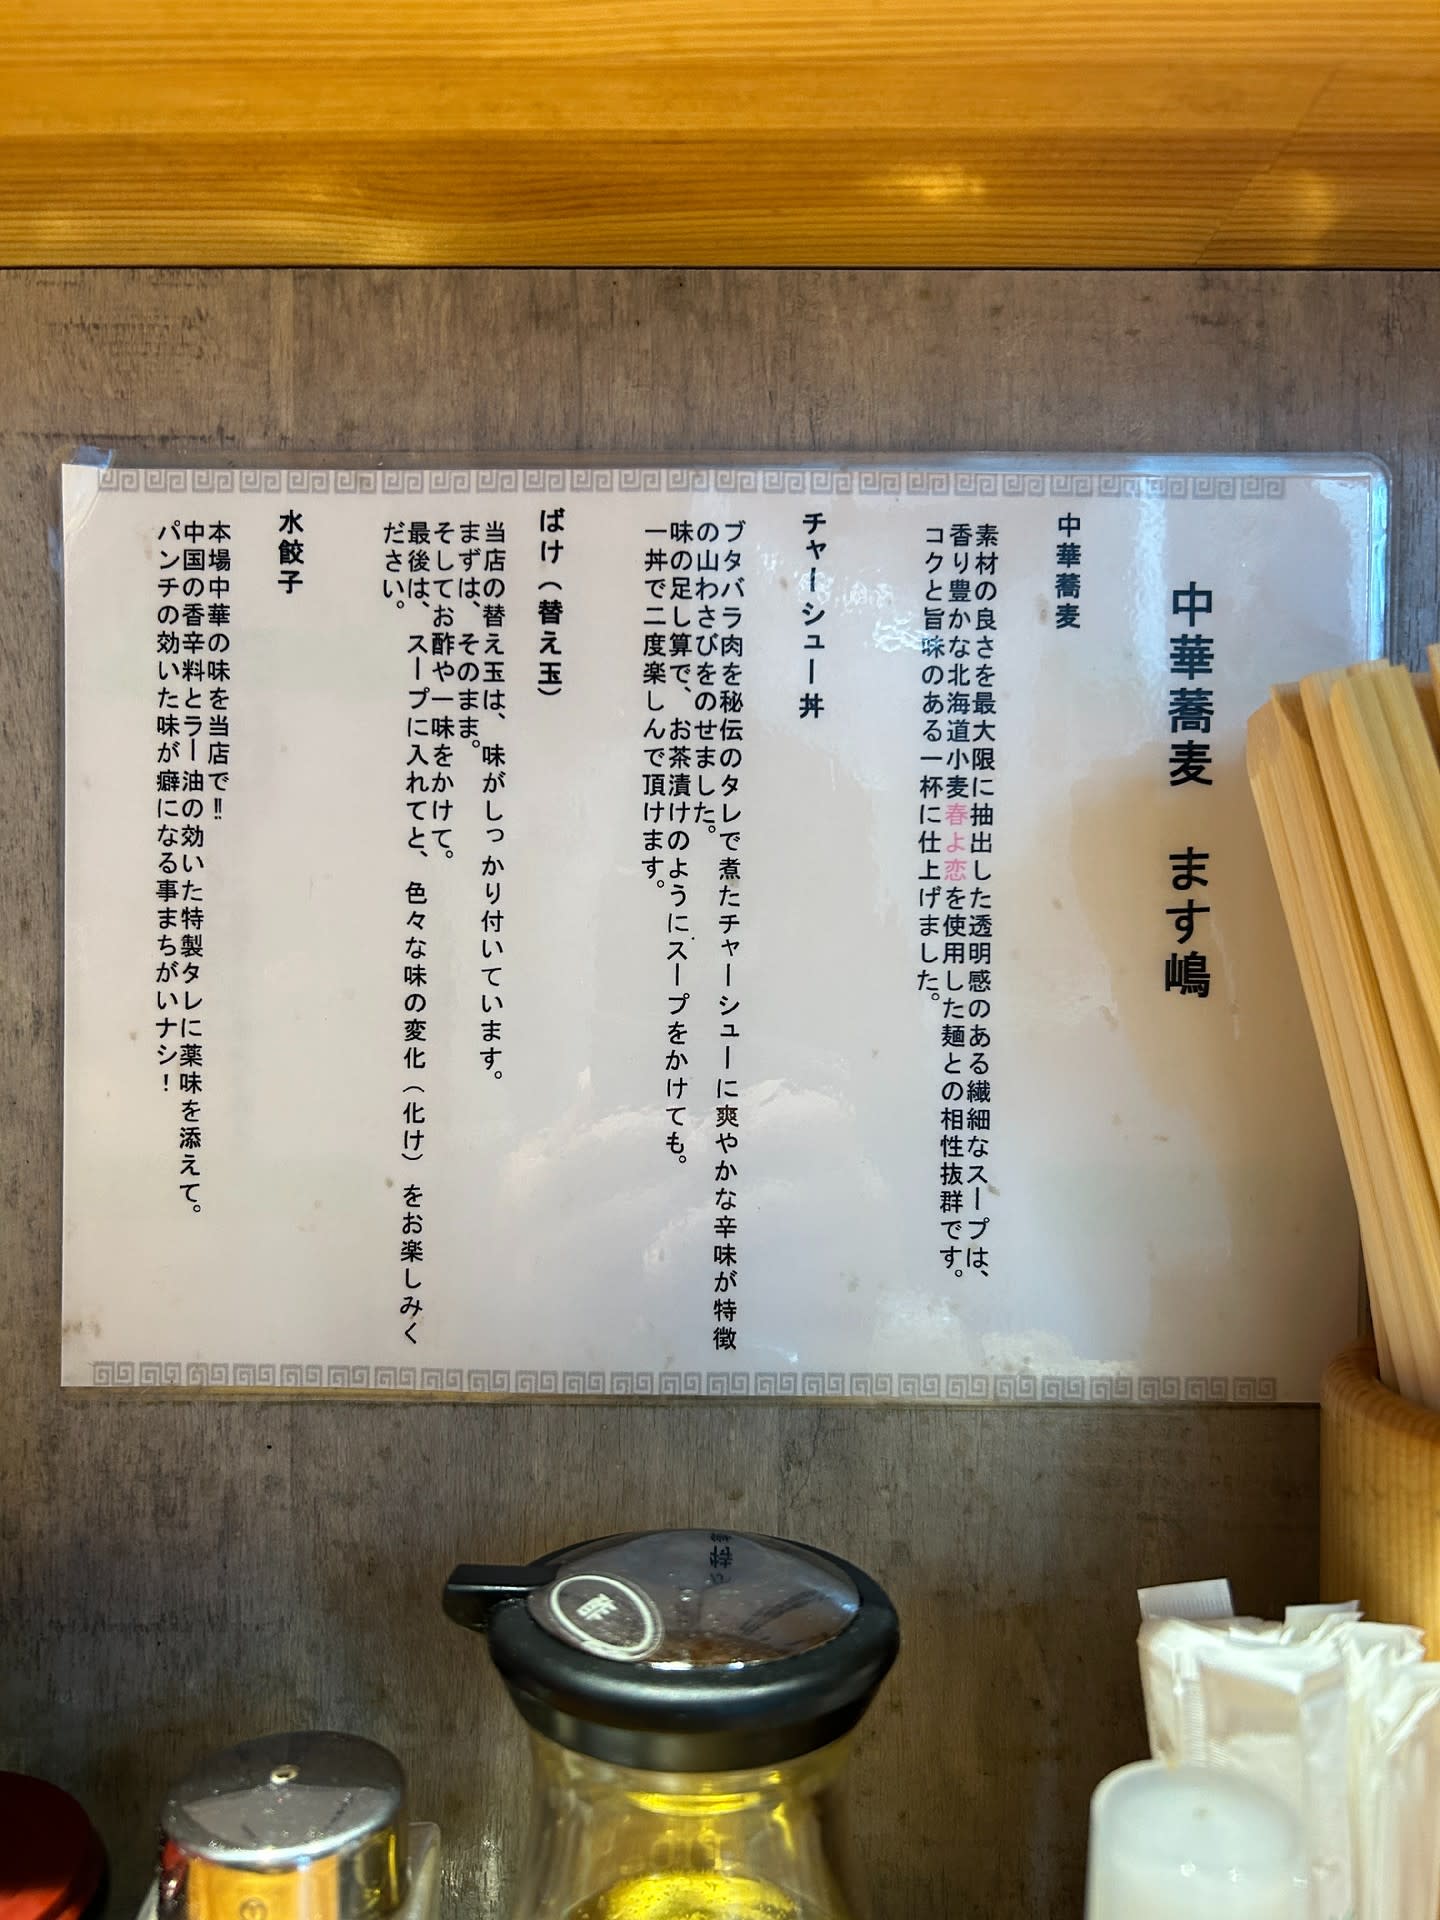 中華蕎麦　ます嶋
中華蕎麦
素材の良さを最大限に抽出した透明感のある繊細なスープは、
香り豊かな北海道小麦春よ恋を使用した麺との相性抜群です。
コクと旨味のある一杯に仕上げました。
チャーシュー丼
ブタバラ肉を秘伝のタレで煮たチャーシューに爽やかな辛味が特徴
の山わさびをのせました。
味の足し算で、お茶漬けのようにスープをかけても。
一丼で二度楽しんで頂けます。
ばけ（替え玉）
当店の替え玉は、味がしっかり付いています。
まずは、そのまま。
そしてお酢や一味をかけて。
最後は、スープに入れてと、色々な味の変化（化け）をお楽しみく
ださい。
水餃子
本場中華の味を当店で‼
中国の香辛料とラー油の効いた特製タレに薬味を添えて。
パンチの効いた味が癖になる事まちがいナシ！